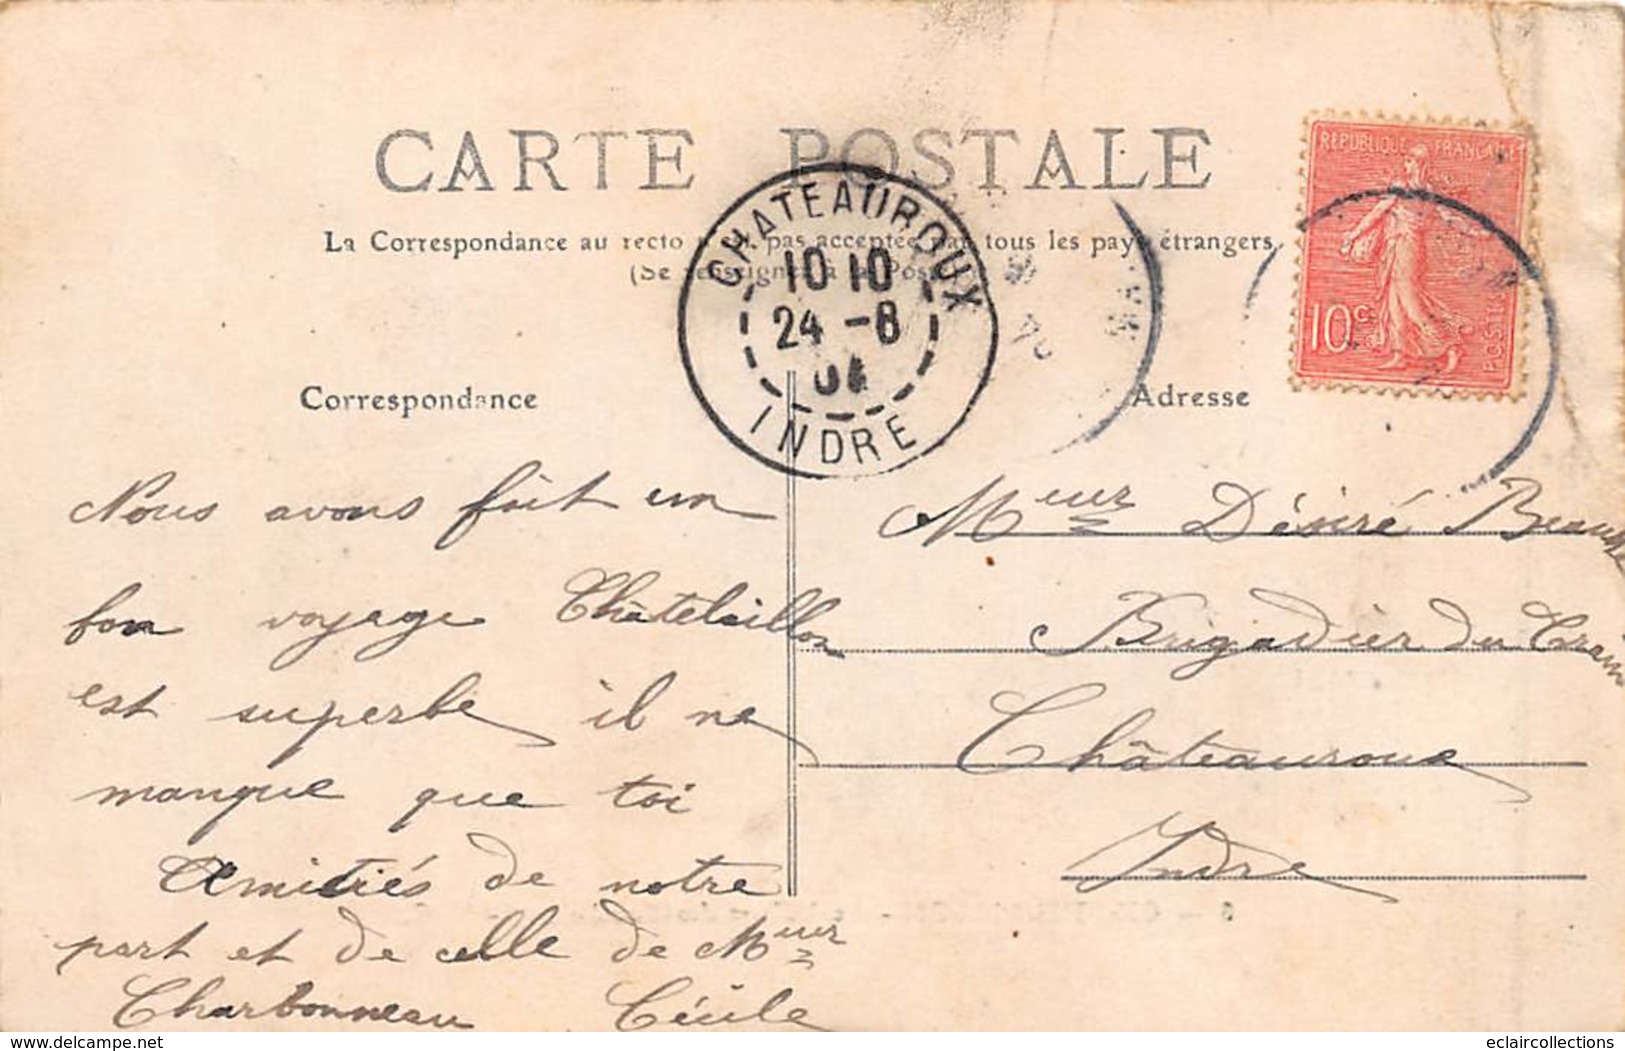 CARTE POSTALE
La Correspondance au recto pas acceptée par tous les pays étrangers
(Se renseigner à la Poste)
Correspondance
Adresse
CHATEAUROUX
10 10
24 -8
04
INDRE
REPUBLIQUE FRANCAISE
10 c.
POSTES
Nous avons fait un
bon voyage Châtelaillon
est superbe il ne
manque que toi
Amitiés de notre
part et de celle de Meur
Charbonneau Cécile
Meur Désiré
Brigadier du Train
Châteauroux
Indre
eclaircollections
delcampe.net